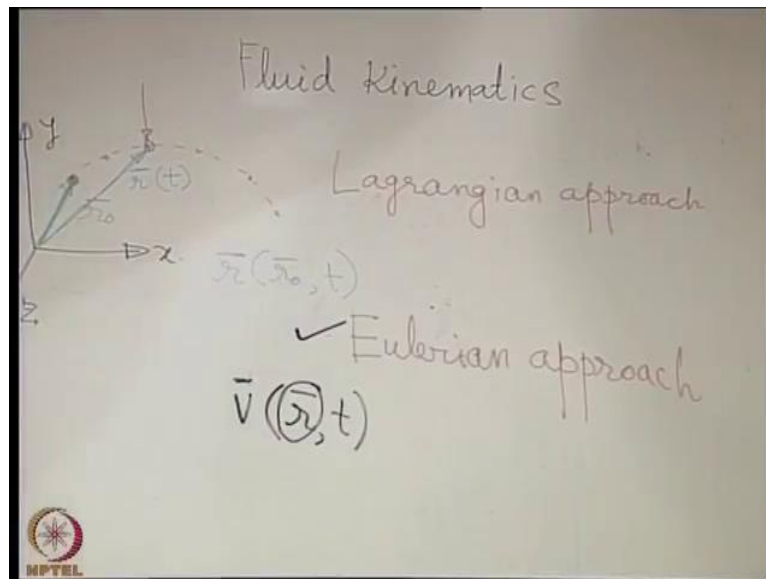 Fluid Kinematics
y
r̄(t)
r̄₀
x
z
Lagrangian approach
r̄(r̄₀, t)
✓ Eulerian approach
V̄(r̄, t)
NPTEL